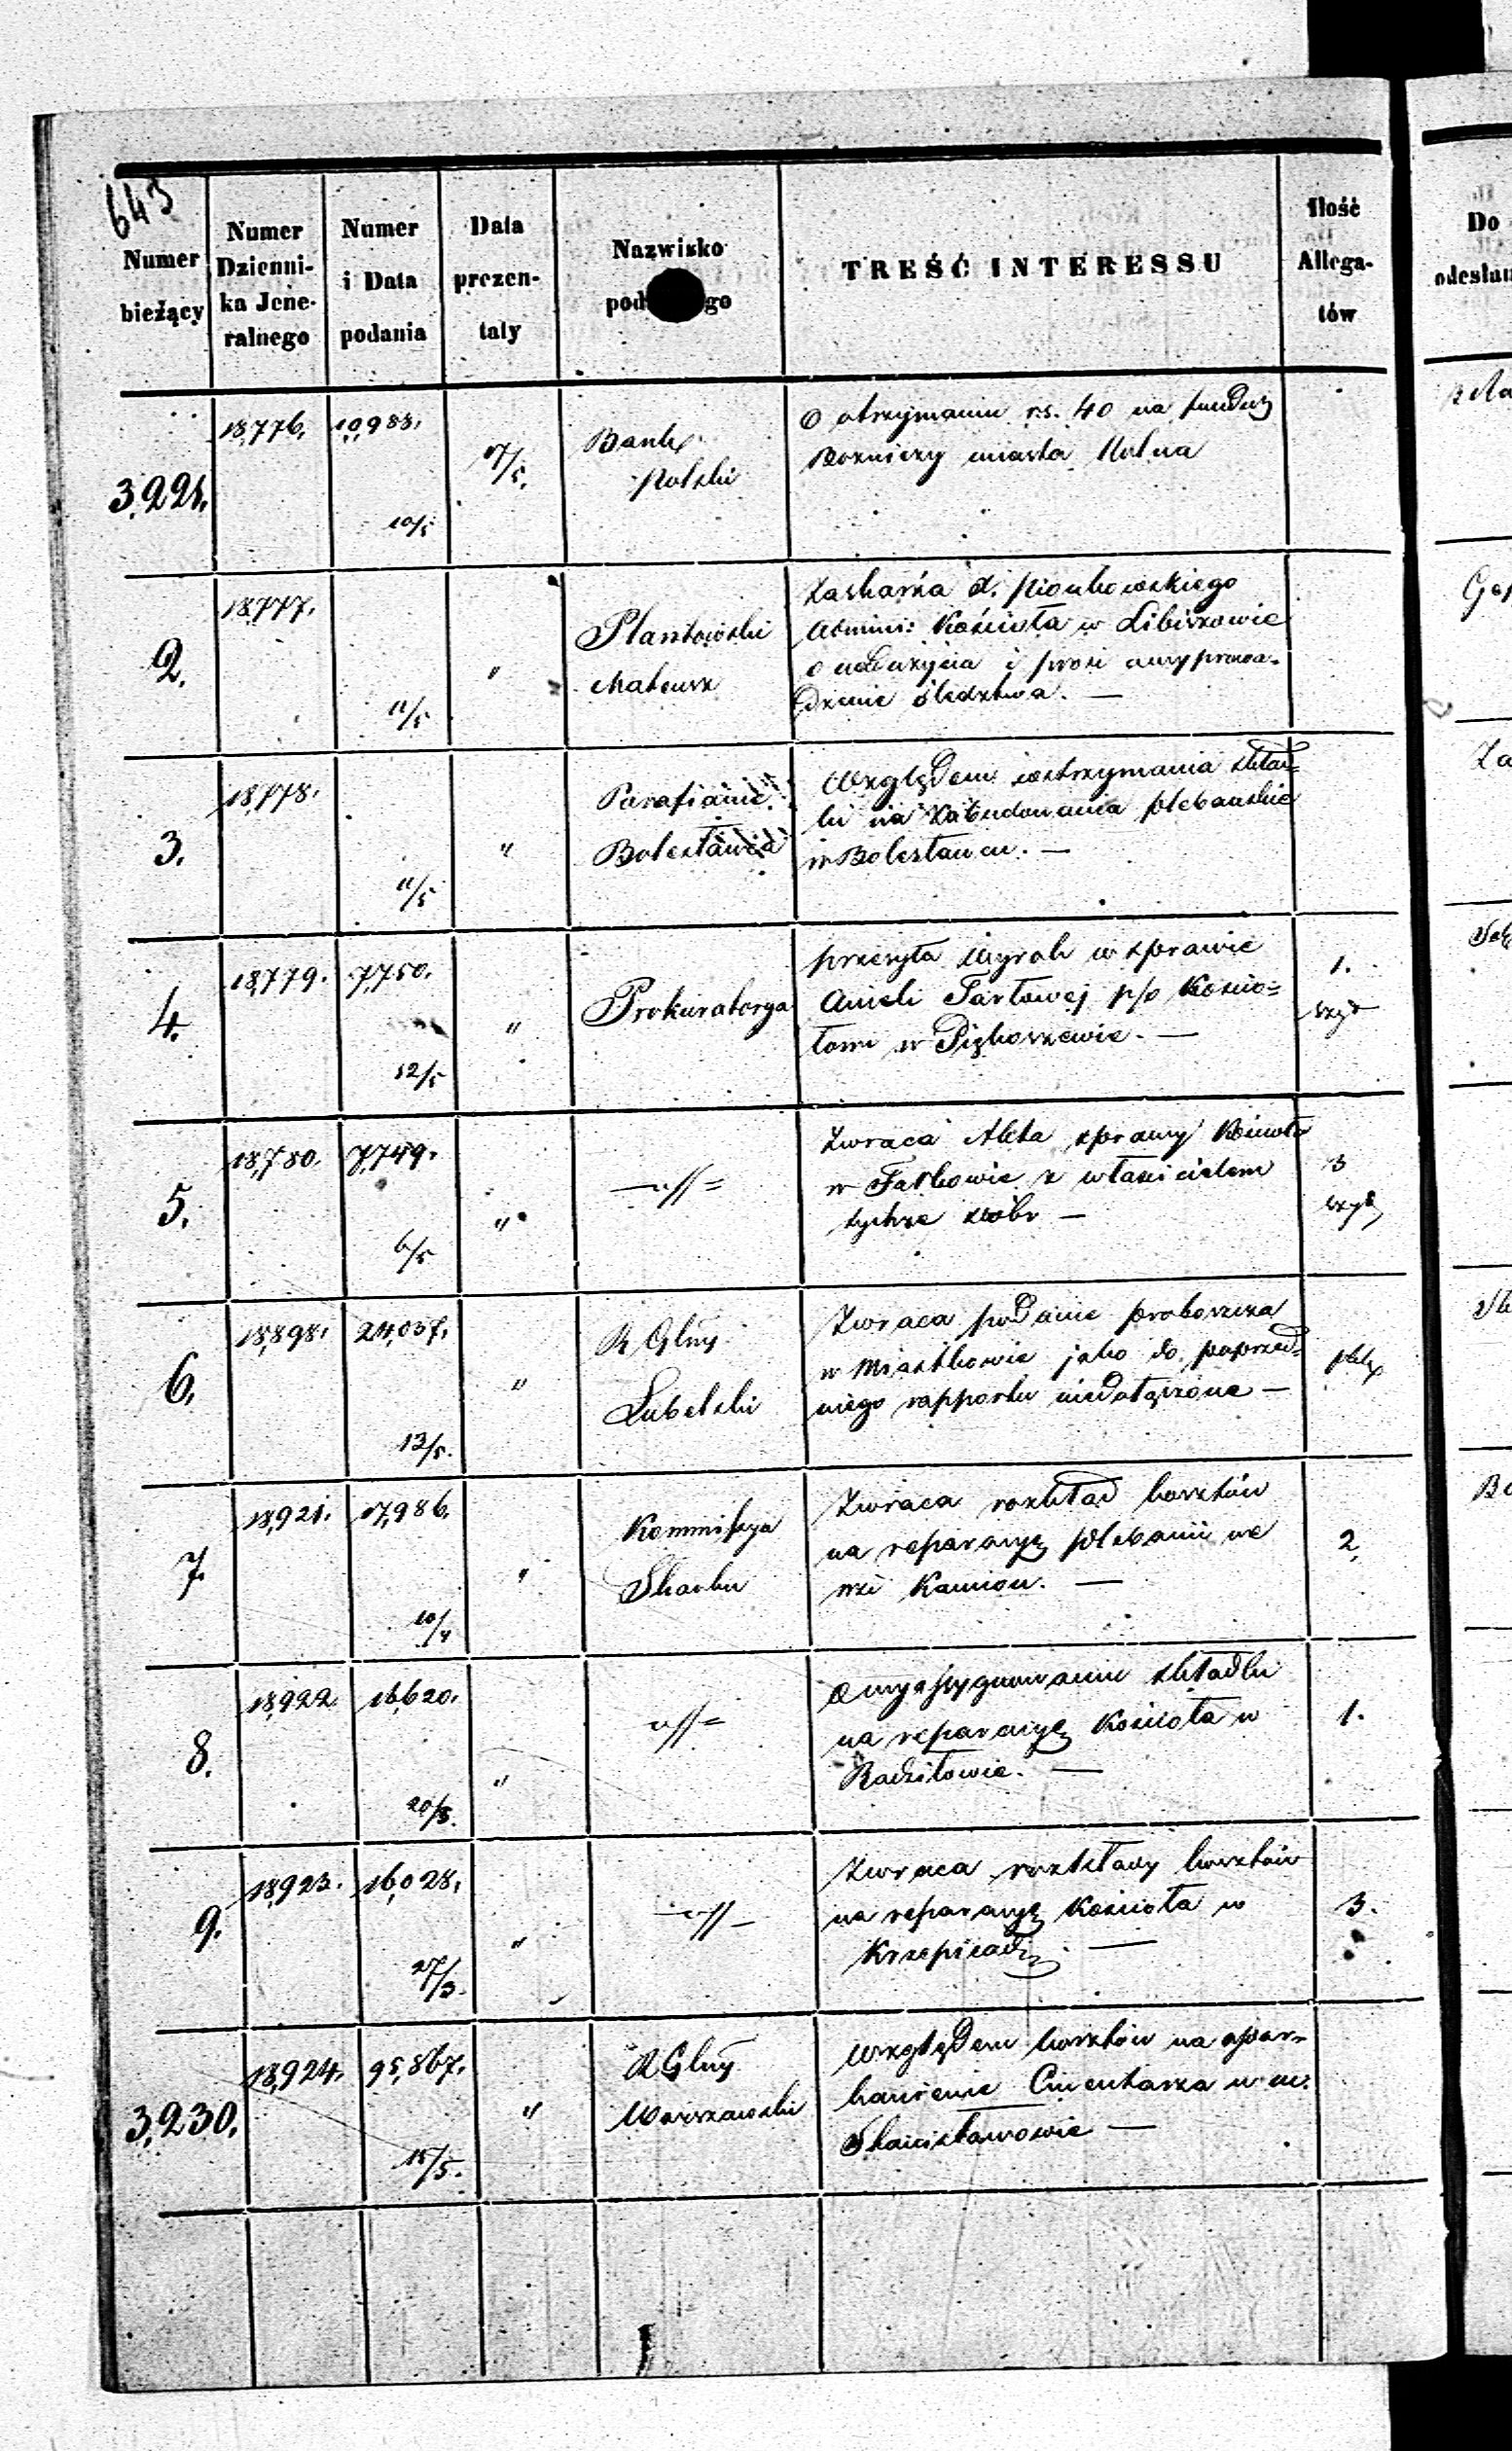 643
Numer bieżący
Numer Dzienni- ka Jene- ralnego
Numer i Data podania
Data prezen- taty
Nazwisko pod go
TREŚĆ INTERESSU
Ilość Allega- tów
Do
3,221.
18,776.
10,983.
10/5
17/5.
Bank
Polski
O otrzymaniu rs. 40 na fundusz
Bożnicy miasta
2.
18,777.
11/5
"
Mateusz
Kościoła w Libiszowie
o nadużycia i prosi o wyprowa-
dzenie śledztwa. —
3.
18,778.
11/5
"
Parafianie
Bolesławca
Względem wstrzymania skład-
ki na Zabudowania plebańskie
w Bolesławcu. —
4.
18,779.
7,750.
12/5
"
Prokuratorya
przesyła Wyrok w sprawie
Anieli p/o Kościo=
łowi w —
1.
5.
18,780.
7,749.
6/5
"
—"—
Zwraca Akta sprawy Kościoła
w z właścicielem
tychże dóbr —
3
6.
18,898.
24,037.
13/5.
"
R Glny
Lubelski
Zwraca podanie proboszcza
w Miastkowie jako do poprzed-
niego rapportu niedołączone —
7.
18,921.
17,986.
10/4
"
Kommissya
Skarbu
Zwraca rozkład kosztów
na reparacyę plebanii we
wsi Kamion. —
2.
8.
18,922.
16,620.
20/3.
"
—"—
O wyassygnowaniu składki
na reparacyę Kościoła w
Radziłowie. —
1.
9.
18,923.
16,028.
27/3.
"
—"—
Zwraca rozkłady kosztów
na reparacyę Kościoła w
Krzepicach. —
3.
3,230.
18,924.
95,867.
15/5.
"
R Glny
Warszawski
Względem kosztów na opar-
kanienie Cmentarza w m.
Stanisławowie —